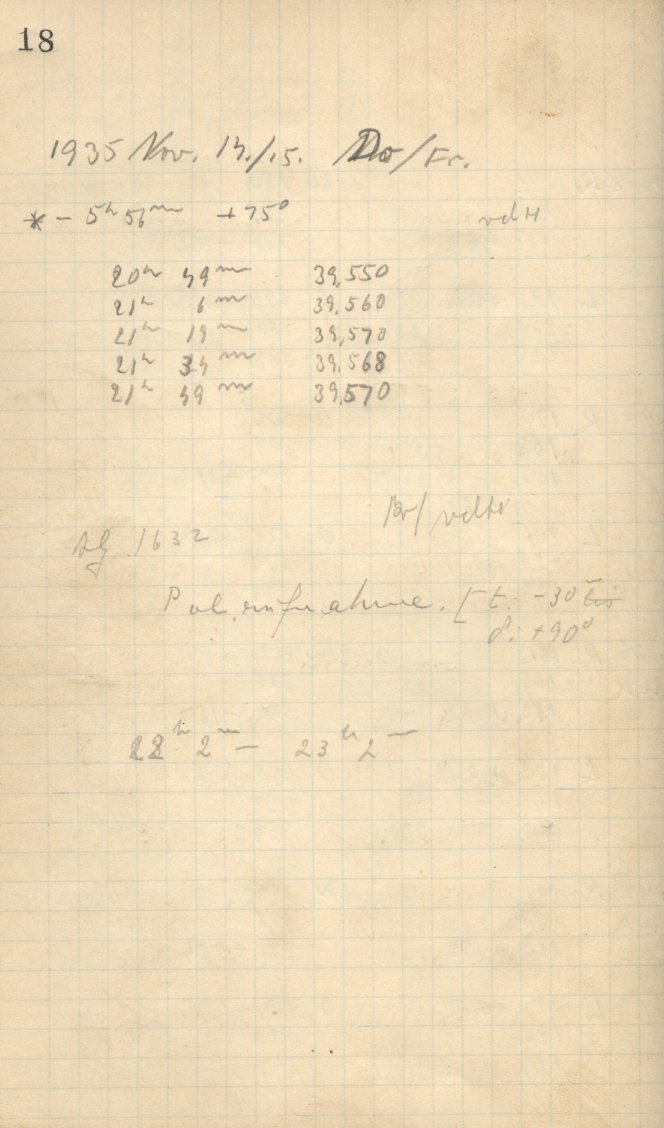 18
1935 Nov. 14./15. Do/Fr.
* - 5h 56m +75°
vdH
20h 49m 39,550
21h 6m 39,560
21h 19m 39,570
21h 34m 39,568
21h 49m 39,570
Br/vdH
1632
Polaufnahme. [t: -30m
δ: +90°
22h 2m — 23h 2m